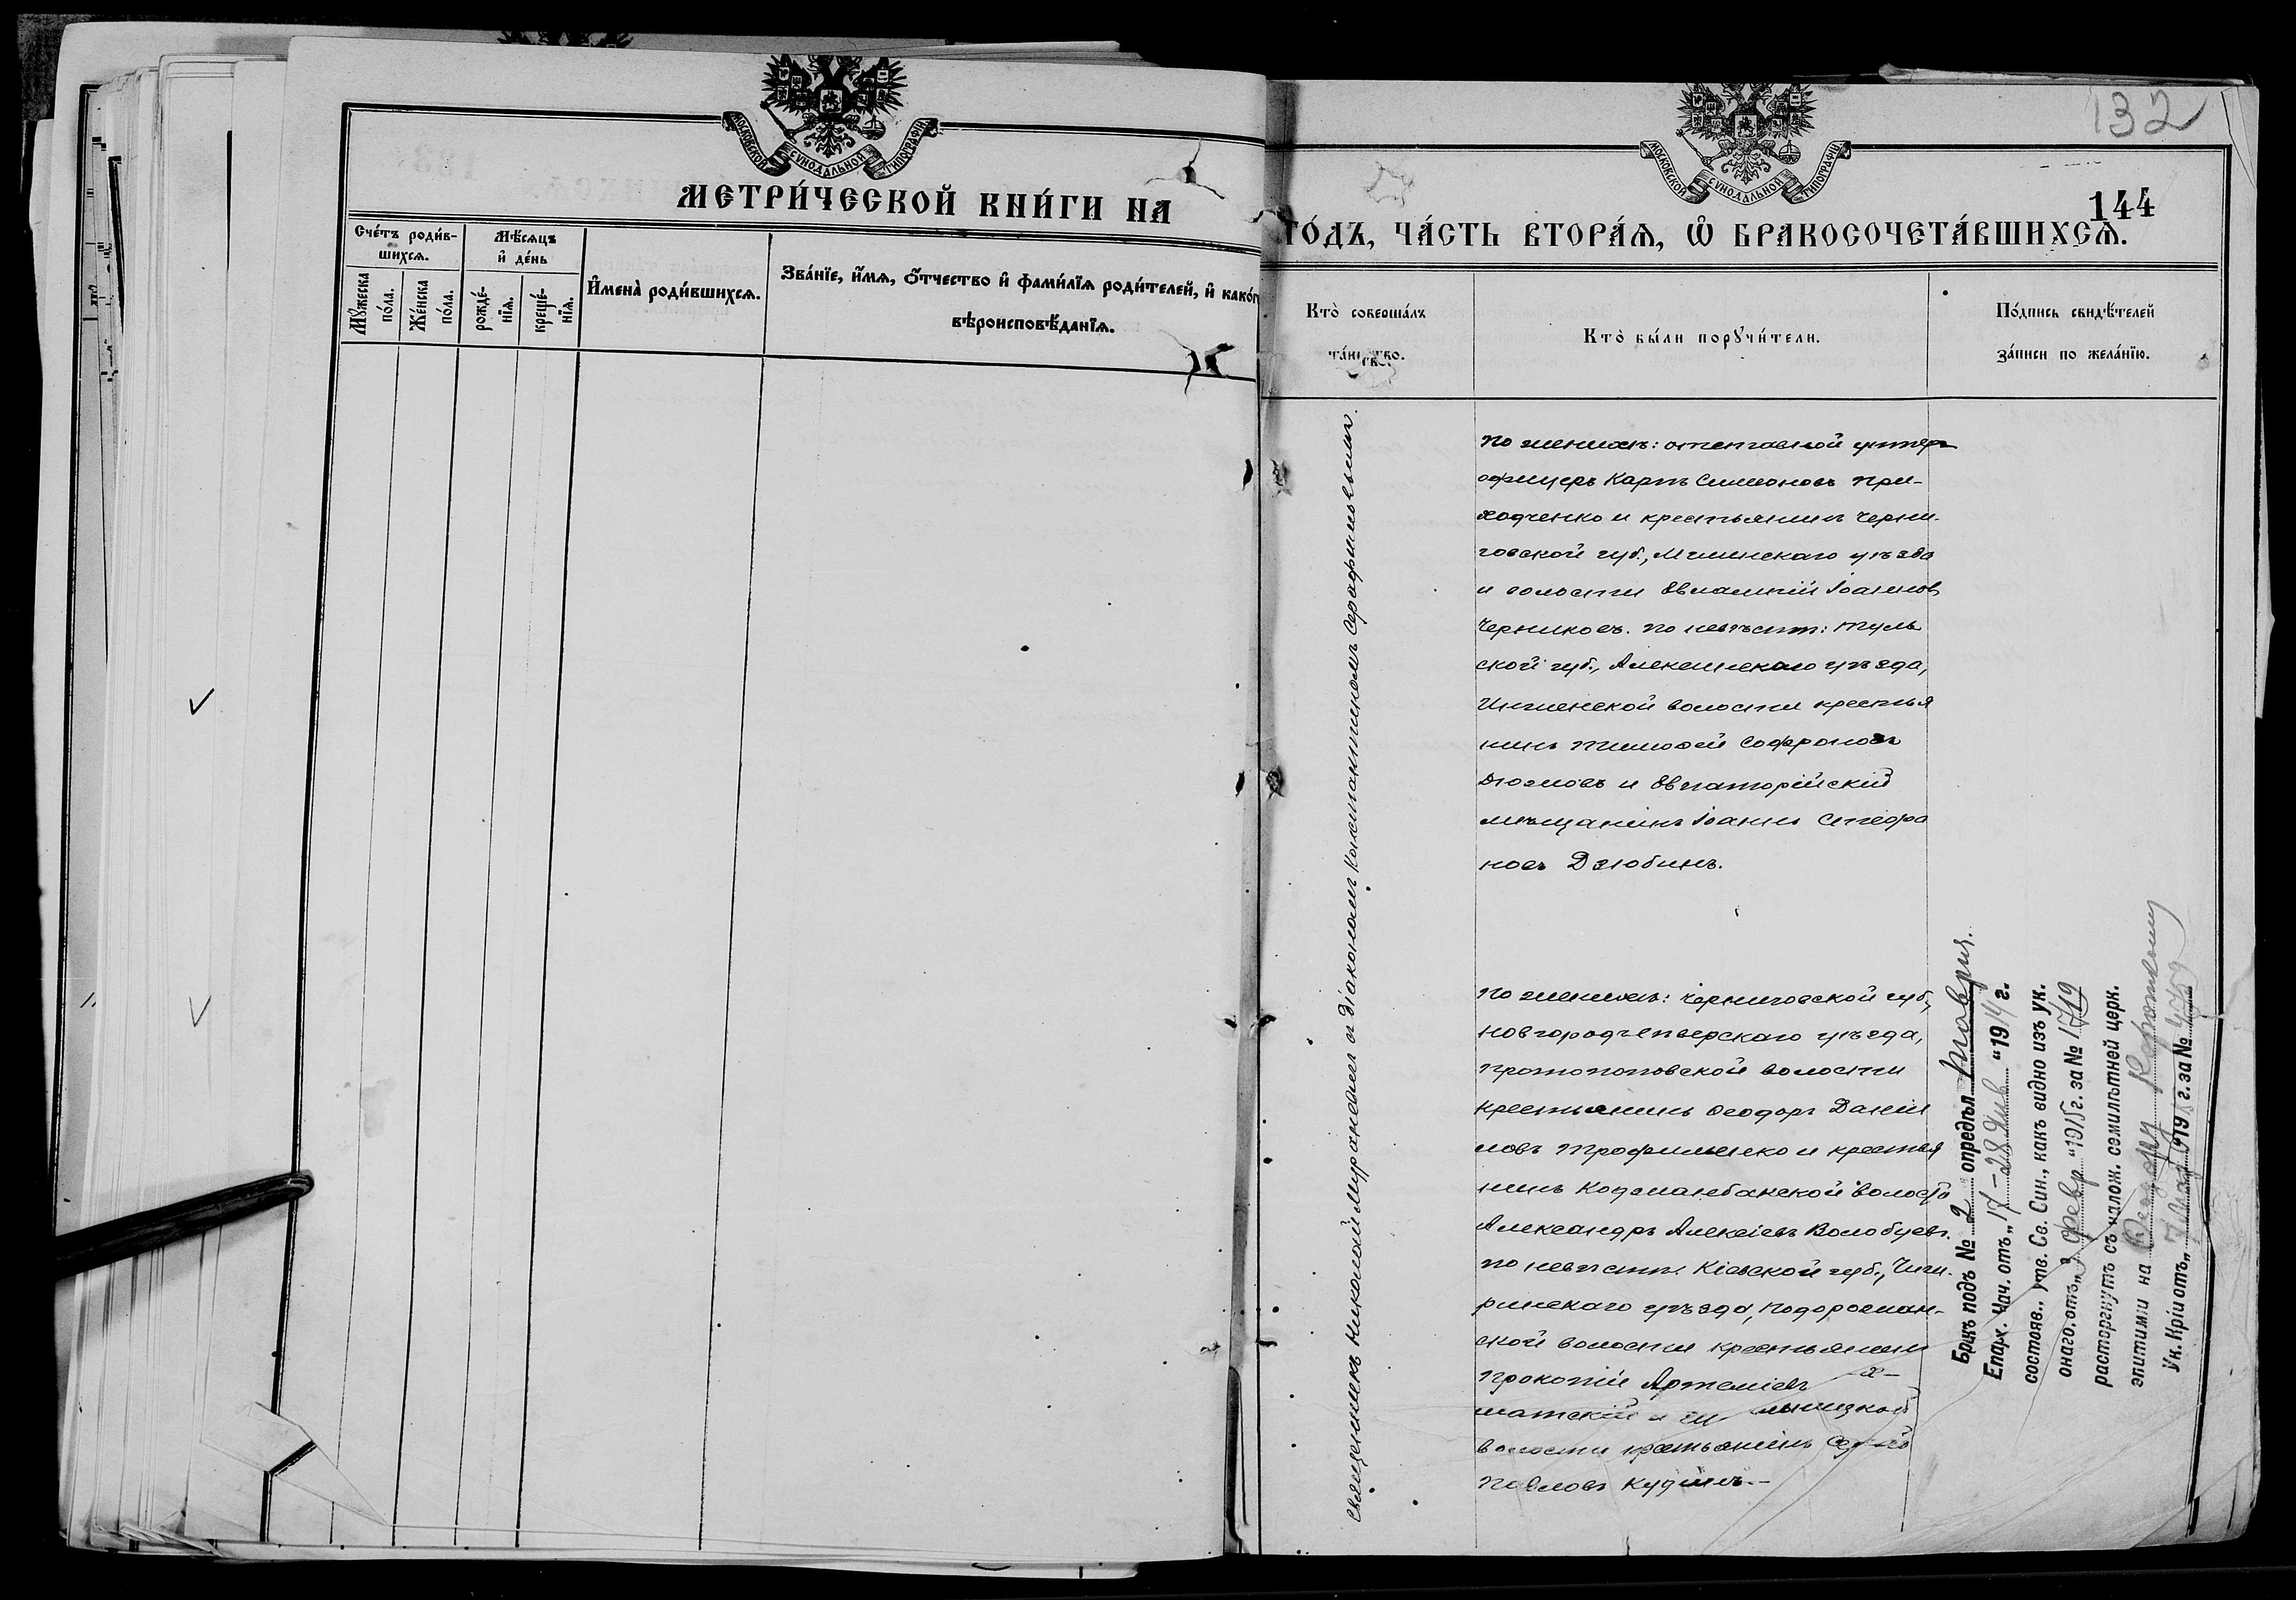 МОСКОВСКОЙ СѴНОДАЛЬНОЙ ТИПОГРАФІИ
МЕТРИ́ЧЕСКОЙ КНИ́ГИ НА
Сче́тъ роди́в-
шихсѧ.
Мѣ́сѧцъ
и҆ де́нь
Мꙋ́жеска
по́ла.
Же́нска
по́ла.
рожде́-
нїѧ.
креще́-
нїѧ.
И҆мена̀ роди́вшихсѧ.
Зва́нїе, и҆́мѧ, ѻ҆́тчество и҆ фами́лїѧ роди́телей, и҆ како́г
вѣроисповѣ́данїѧ.
132
МОСКОВСКОЙ СѴНОДАЛЬНОЙ ТИПОГРАФІИ
144
ГО́ДЪ, ЧА́СТЬ ВТОРА́Ѧ, Ѽ БРАКОСОЧЕТА́ВШИХСѦ.
Кто̀ совершалъ
та́инство.
Кто̀ бы́ли порꙋчи́тели.
По́дпись свидѣ́телей
за́писи по жела́нїю.
Священникъ Николай Мурановичъ съ діакономъ Константиномъ Серафимовымъ.
по женихѣ: отставной унтеръ
офицеръ Карпъ Симеоновъ При-
ходченко и крестьянинъ Черни-
говской губ., Мглинскаго уѣзда
и волости Евлампій Іоанновъ
Черниковъ. по невѣстѣ: Туль
ской губ., Алексинскаго уѣзда,
волости крестья
нинъ Тимоѳей Софроновъ
и Евпаторійскій
мѣщанинъ Іоаннъ Стефа
новъ Дзюбинъ.
по женихѣ: Черниговской губ.,
Новгородсѣверскаго уѣзда,
Протопоповской волости
крестьянинъ Ѳеодоръ Даніи
ловъ Трофименко и крестья
нинъ волости
Александръ Алексіевъ Волобуевъ.
по невѣстѣ: Кіевской губ., Чиги-
ринскаго уѣзда, Подороснан-
ской волости крестьянинъ
Прокопій Артеміевъ
волости крестьянинъ
Павловъ Кудинъ.-
Бракъ подъ № 2 опредѣл. Таврич.
Епарх. Нач. отъ „17-28 Янв. "1914 г.
состояв., утв. Св. Син., какъ видно изъ ук.
онаго, отъ „ февр "1915 г. за № 1719
расторгнутъ съ налож. семилѣтней церк.
эпитиміи на Ѳеодору Короткому
Ук. Кріи отъ „ 191 г. за № 4759